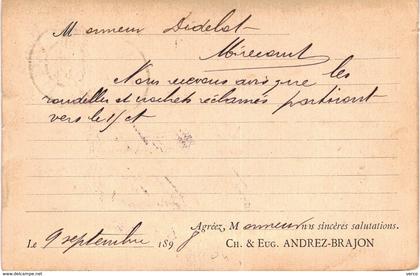 Monsieur Didelot
Mirecourt
Nous recevons avis que les
rondelles et crochets réclamés partiront
vers le 15 ct
Agréez, Monsieur nos sincères salutations.
Le 9 septembre 1898
CH. & EUG. ANDREZ-BRAJON